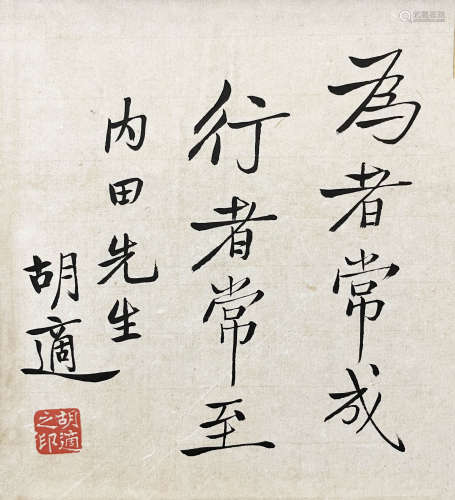 為者常成
行者常至
内田先生
胡適
胡適之印